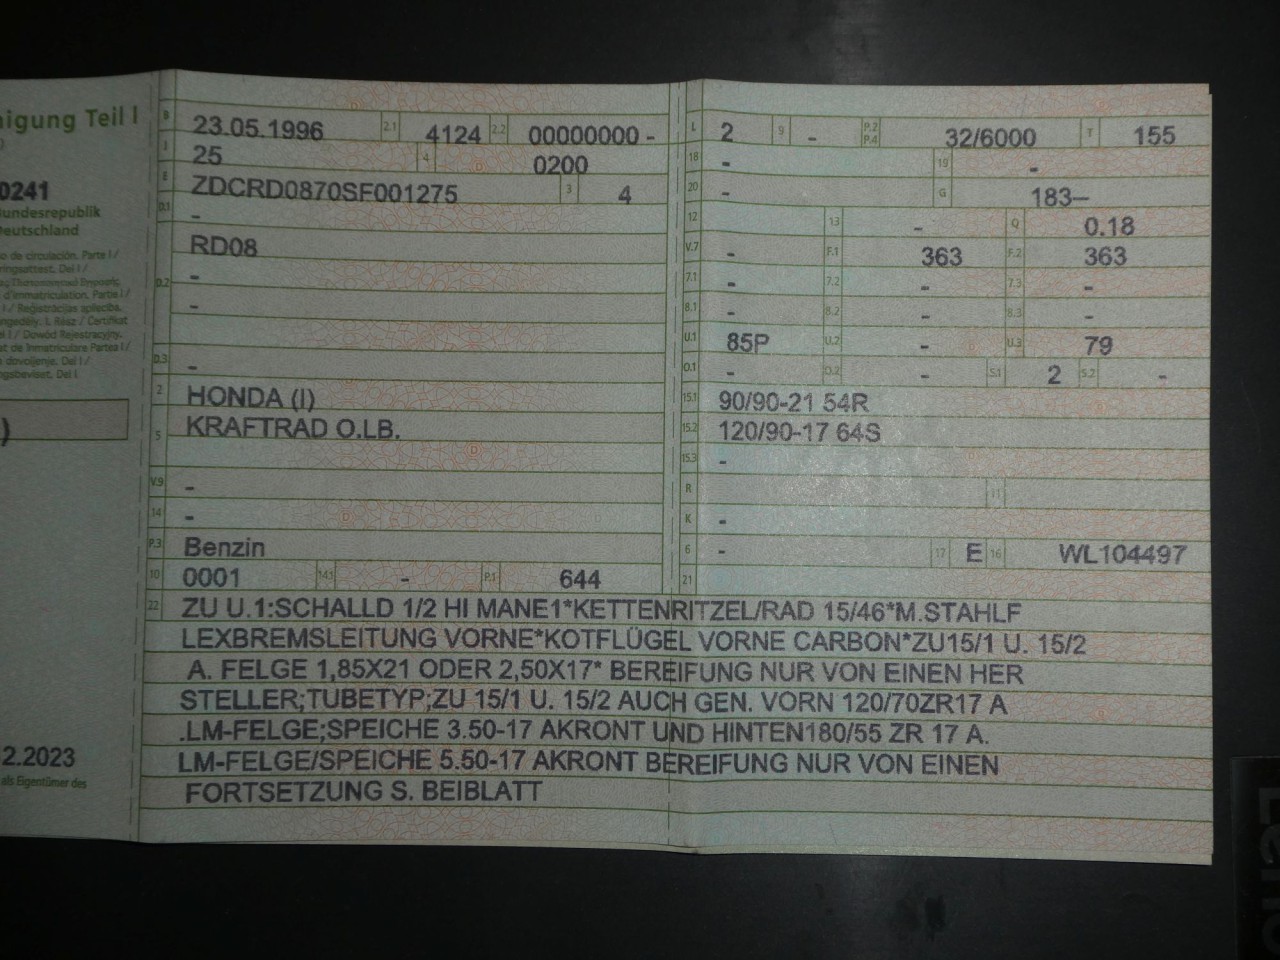 igung Teil I
0241
Bundesrepublik
Deutschland
2.2023
als Eigentümer des
B 23.05.1996 2.1 4124 2.2 00000000 -
J 25 4 0200
E ZDCRD0870SF001275 3 4
D.1 -
RD08
D.2 -
-
D.3 -
2 HONDA (I)
5 KRAFTRAD O.LB.
V.9 -
14 -
P.3 Benzin
10 0001 14.1 - P.1 644
L 2 9 - P.2 P.4 32/6000 T 155
18 - 19 -
20 - G 183–
12 - 13 - Q 0.18
V.7 - F.1 363 F.2 363
7.1 - 7.2 - 7.3 -
8.1 - 8.2 - 8.3 -
U.1 85P U.2 - U.3 79
O.1 - O.2 - S.1 2 S.2 -
15.1 90/90-21 54R
15.2 120/90-17 64S
15.3 -
R 11
K -
6 - 17 E 16 WL104497
21
22 ZU U.1:SCHALLD 1/2 HI MANE1*KETTENRITZEL/RAD 15/46*M.STAHLF
LEXBREMSLEITUNG VORNE*KOTFLÜGEL VORNE CARBON*ZU15/1 U. 15/2
A. FELGE 1,85X21 ODER 2,50X17* BEREIFUNG NUR VON EINEN HER
STELLER;TUBETYP;ZU 15/1 U. 15/2 AUCH GEN. VORN 120/70ZR17 A
.LM-FELGE;SPEICHE 3.50-17 AKRONT UND HINTEN180/55 ZR 17 A.
LM-FELGE/SPEICHE 5.50-17 AKRONT BEREIFUNG NUR VON EINEN
FORTSETZUNG S. BEIBLATT